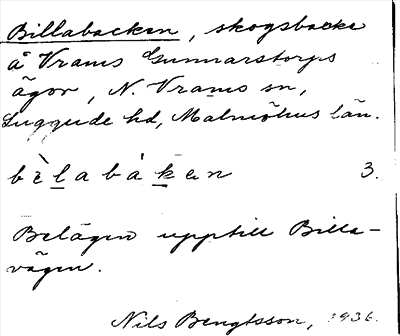 Billabacken, skogsbacke
å Vrams Gunnarstorps
ägor, N. Vrams sn,
Luggude hd, Malmöhus län.
bèlabáken 3.
Belägen upptill Billa-
vägen.
Nils Bengtsson, 1936.